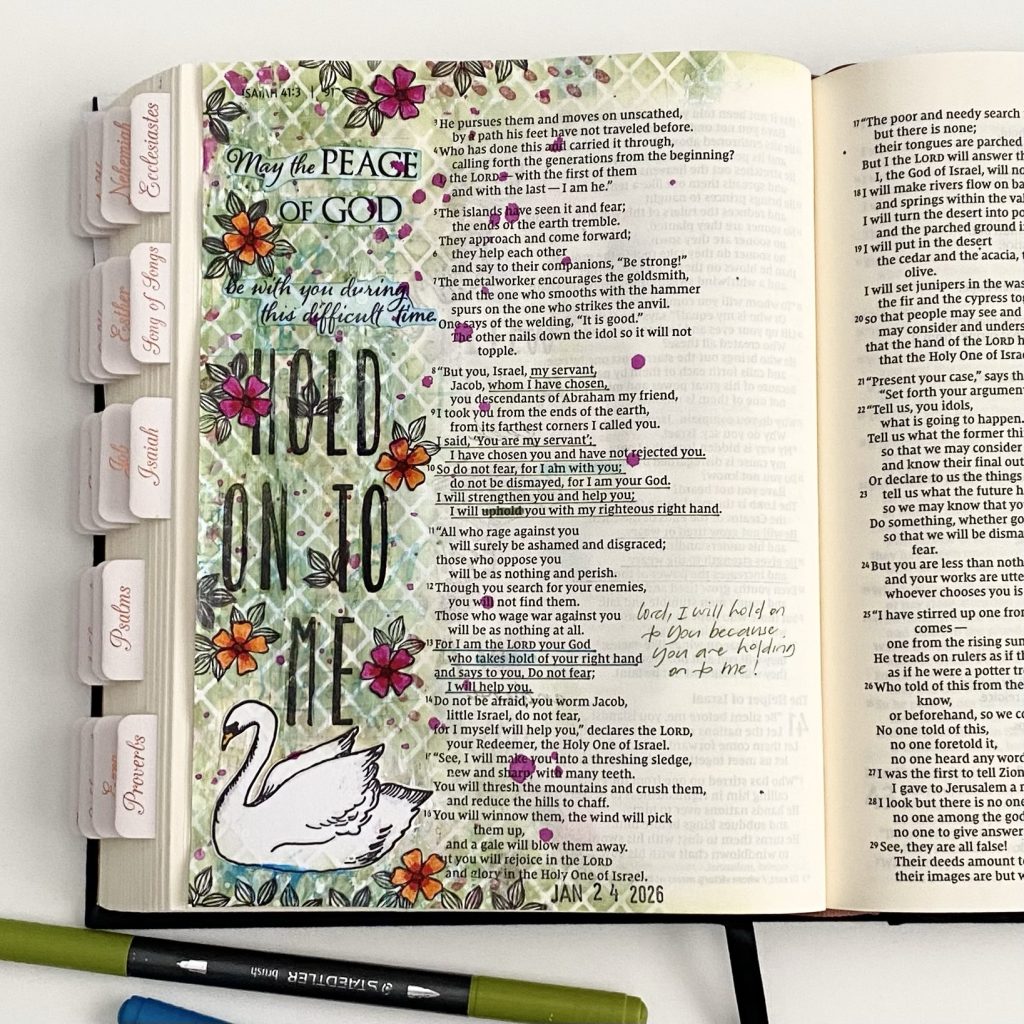 Nehemiah
Ecclesiastes
Esther
Song of Songs
Job
Isaiah
Psalms
Proverbs
ISAIAH 41:3 | 91
May the PEACE
OF GOD
be with you during
this difficult time.
HOLD
ON TO
ME
3 He pursues them and moves on unscathed,
by a path his feet have not traveled before.
4 Who has done this and carried it through,
calling forth the generations from the beginning?
I, the LORD — with the first of them
and with the last — I am he.”
5 The islands have seen it and fear;
the ends of the earth tremble.
They approach and come forward;
6 they help each other
and say to their companions, “Be strong!”
7 The metalworker encourages the goldsmith,
and the one who smooths with the hammer
spurs on the one who strikes the anvil.
One says of the welding, “It is good.”
The other nails down the idol so it will not
topple.
8 “But you, Israel, my servant,
Jacob, whom I have chosen,
you descendants of Abraham my friend,
9 I took you from the ends of the earth,
from its farthest corners I called you.
I said, ‘You are my servant’;
I have chosen you and have not rejected you.
10 So do not fear, for I am with you;
do not be dismayed, for I am your God.
I will strengthen you and help you;
I will uphold you with my righteous right hand.
11 “All who rage against you
will surely be ashamed and disgraced;
those who oppose you
will be as nothing and perish.
12 Though you search for your enemies,
you will not find them.
Those who wage war against you
will be as nothing at all.
13 For I am the LORD your God
who takes hold of your right hand
and says to you, Do not fear;
I will help you.
14 Do not be afraid, you worm Jacob,
little Israel, do not fear,
for I myself will help you,” declares the LORD,
your Redeemer, the Holy One of Israel.
15 “See, I will make you into a threshing sledge,
new and sharp, with many teeth.
You will thresh the mountains and crush them,
and reduce the hills to chaff.
16 You will winnow them, the wind will pick
them up,
and a gale will blow them away.
But you will rejoice in the LORD
and glory in the Holy One of Israel.
Lord, I will hold on
to You because
You are holding
on to me!
JAN 24 2026
17 “The poor and needy search
but there is none;
their tongues are parched
But I the LORD will answer
I, the God of Israel, will
18 I will make rivers flow on
and springs within the
I will turn the desert into
and the parched ground
19 I will put in the desert
the cedar and the acacia,
olive.
I will set junipers in the
the fir and the cypress
20 so that people may see and
may consider and
that the hand of the LORD
that the Holy One of
21 “Present your case,” says
“Set forth your
22 “Tell us, you idols,
what is going to happen.
Tell us what the former
so that we may consider
and know their final
Or declare to us the things
23 tell us what the future
so we may know that
Do something, whether
so that we will be
fear.
24 But you are less than
and your works are
whoever chooses you is
25 “I have stirred up one
comes —
one from the rising
He treads on rulers as if
as if he were a potter
26 Who told of this from the
know,
or beforehand, so we
No one told of this,
no one foretold it,
no one heard any
27 I was the first to tell Zion
I gave to Jerusalem a
28 I look but there is no one
no one among the
no one to give answer
29 See, they are all false!
Their deeds amount
their images are but
STAEDTLER brush